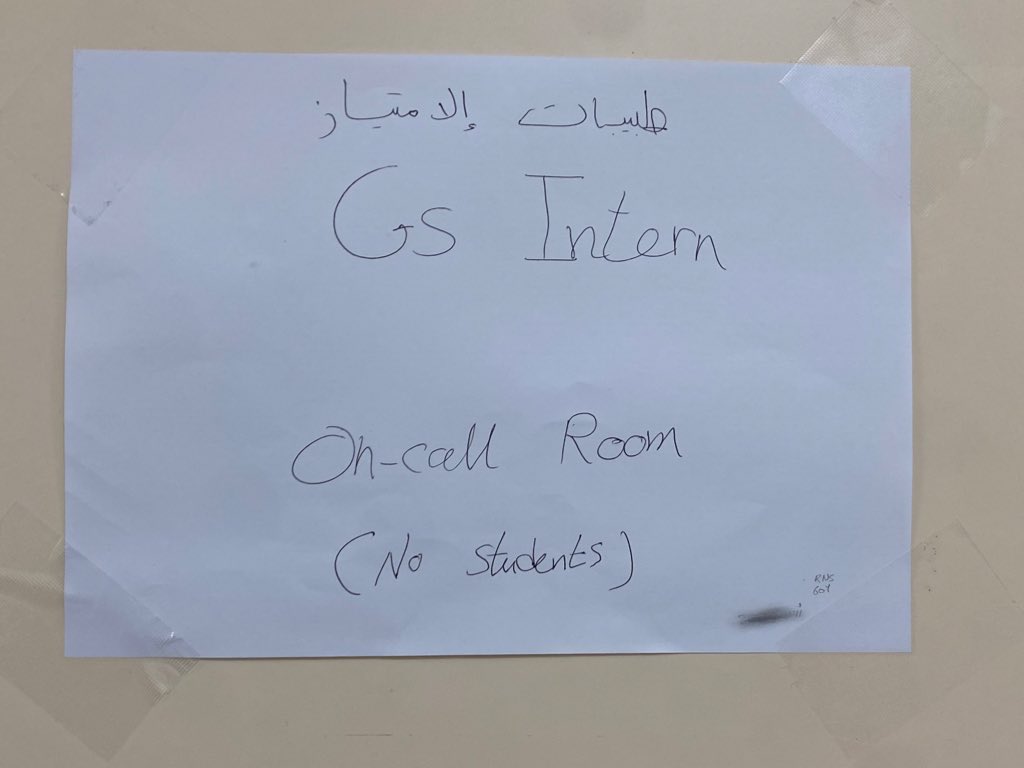 طبيبات إلامتياز
Gs Intern
On-call Room
(No students)